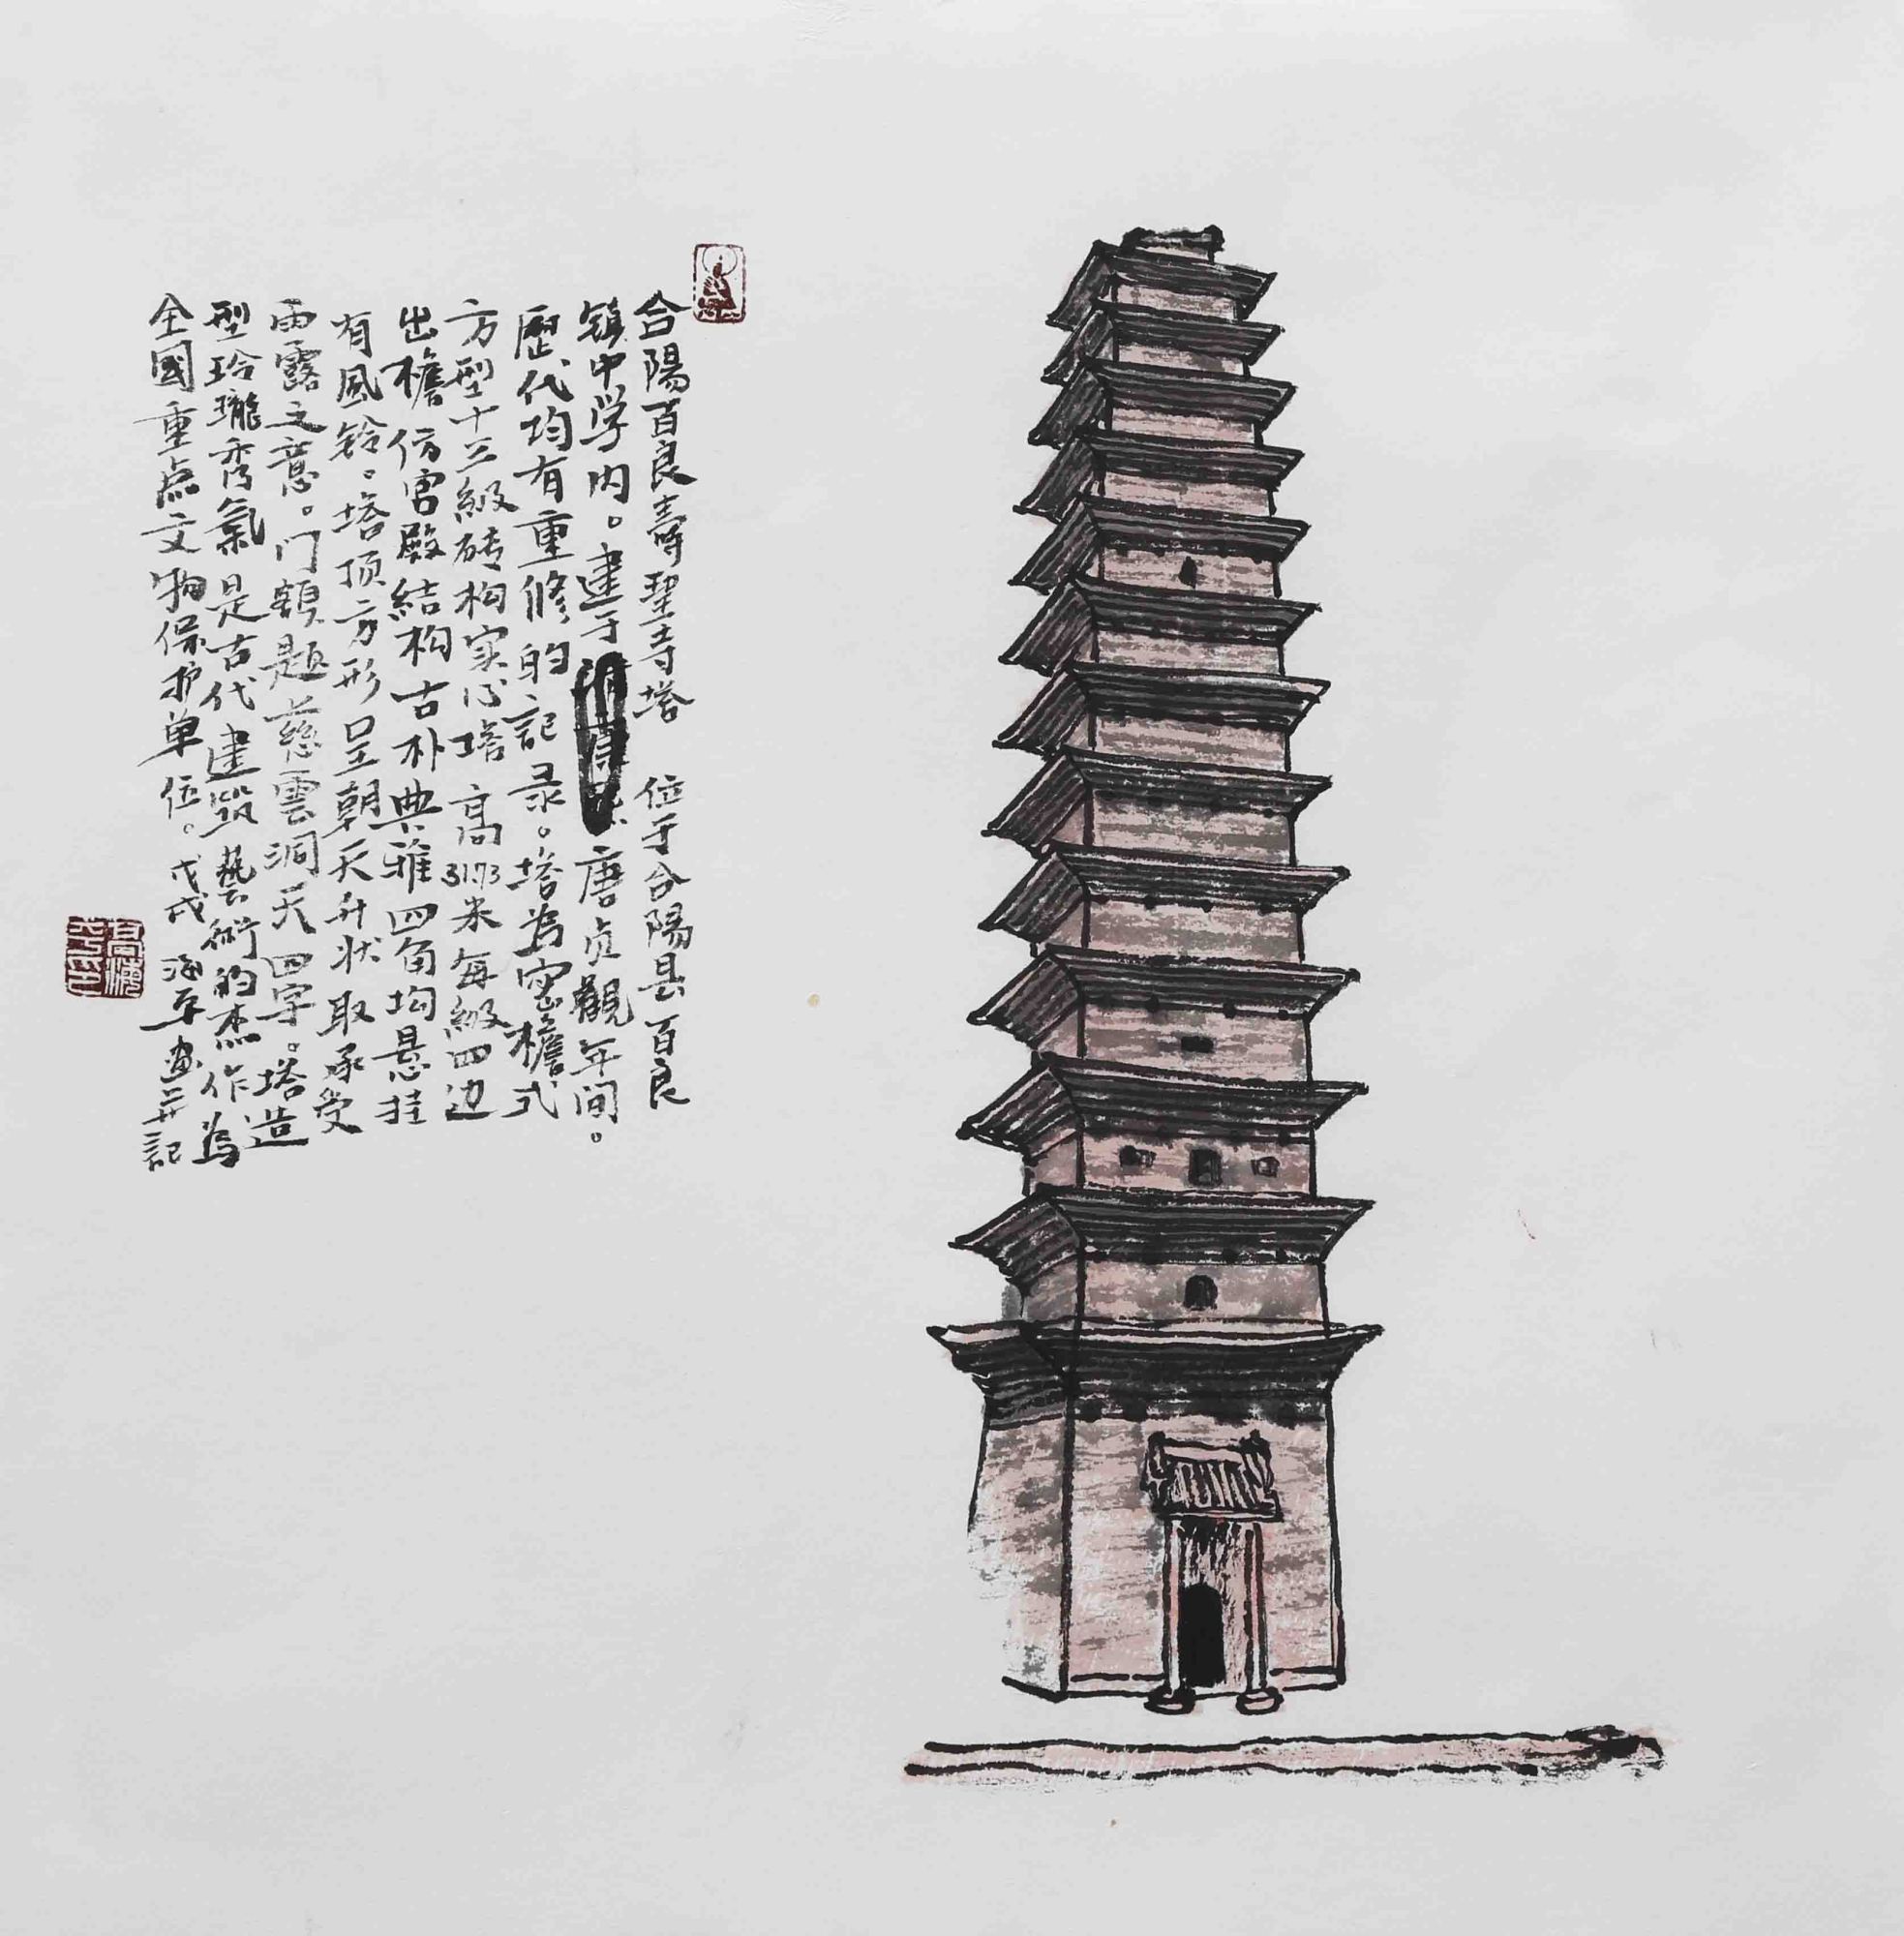 合陽百良壽聖寺塔 位于合陽县百良
镇中学内。建于 唐贞觀年间。
歷代均有重修的記录。塔為密檐式
方型十三级砖构实心塔 高31.73米每级四边
出檐仿宫殿結构古朴典雅四角均悬挂
有风铃。塔顶方形呈朝天升状取承受
雨露之意。门额题慈雲洞天四字。塔造
型玲瓏秀氣是古代建筑藝術的杰作為
全國重点文物保护单位。戊戌 海平画并記